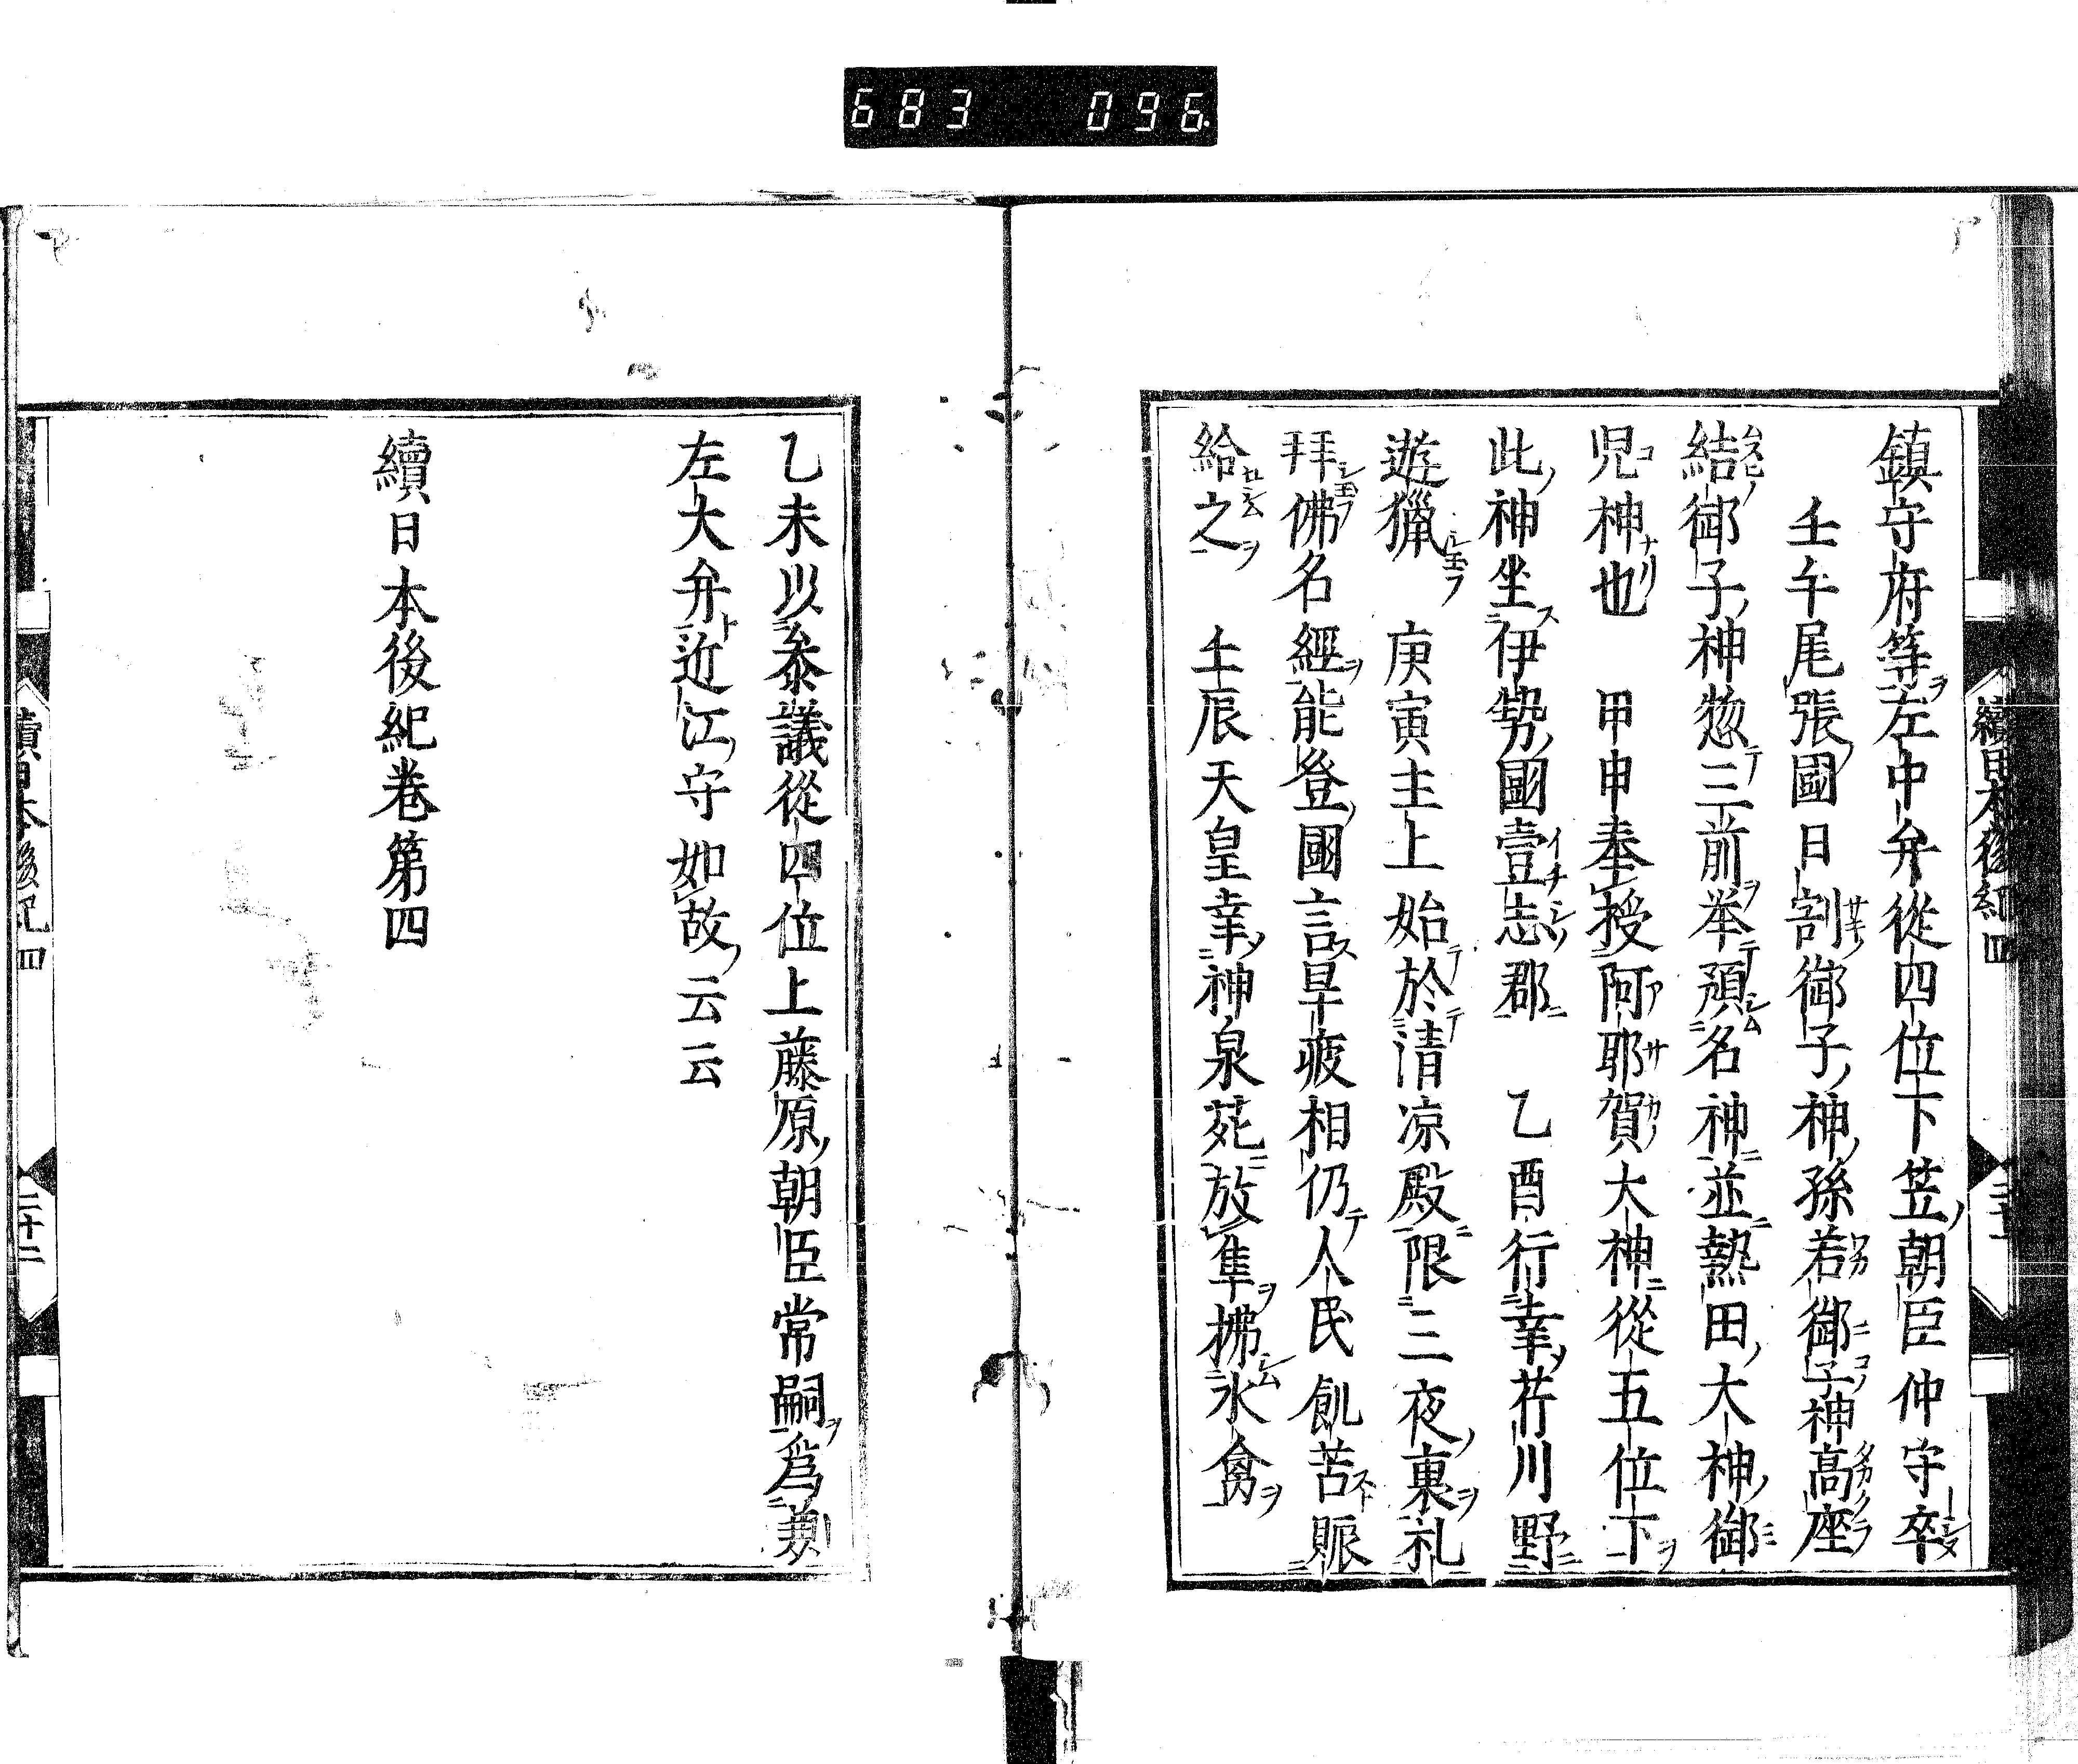 683 096
續日本後紀四
鎮守府等左中弁從四位下笠朝臣仲守卒
壬午尾張國日割御子神孫若御子神高座
結御子神惣三前举預名神並熱田大神御
児神也 甲申奉授阿耶賀大神從五位下
此神坐伊勢國壹志郡 乙酉行幸芹川野
遊獵 庚寅主上始於清凉殿限三夜裏礼
拜佛名經能登國言旱疲相仍人民飢苦賑
給之 壬辰天皇幸神泉苑放隼拂水禽
乙未以叅議從四位上藤原朝臣常嗣爲兼
左大弁近江守如故云云
續日本後紀卷第四
續日本後紀四
二十二